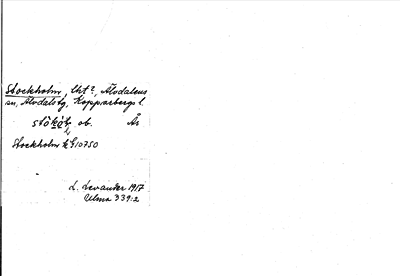 Stockholm, Utt?, Älvdalens
sn, Älvdalstg, Kopparbergs l.
ob. Är
Stockholm G10750
L. Levander 1917
Ulma 339:2